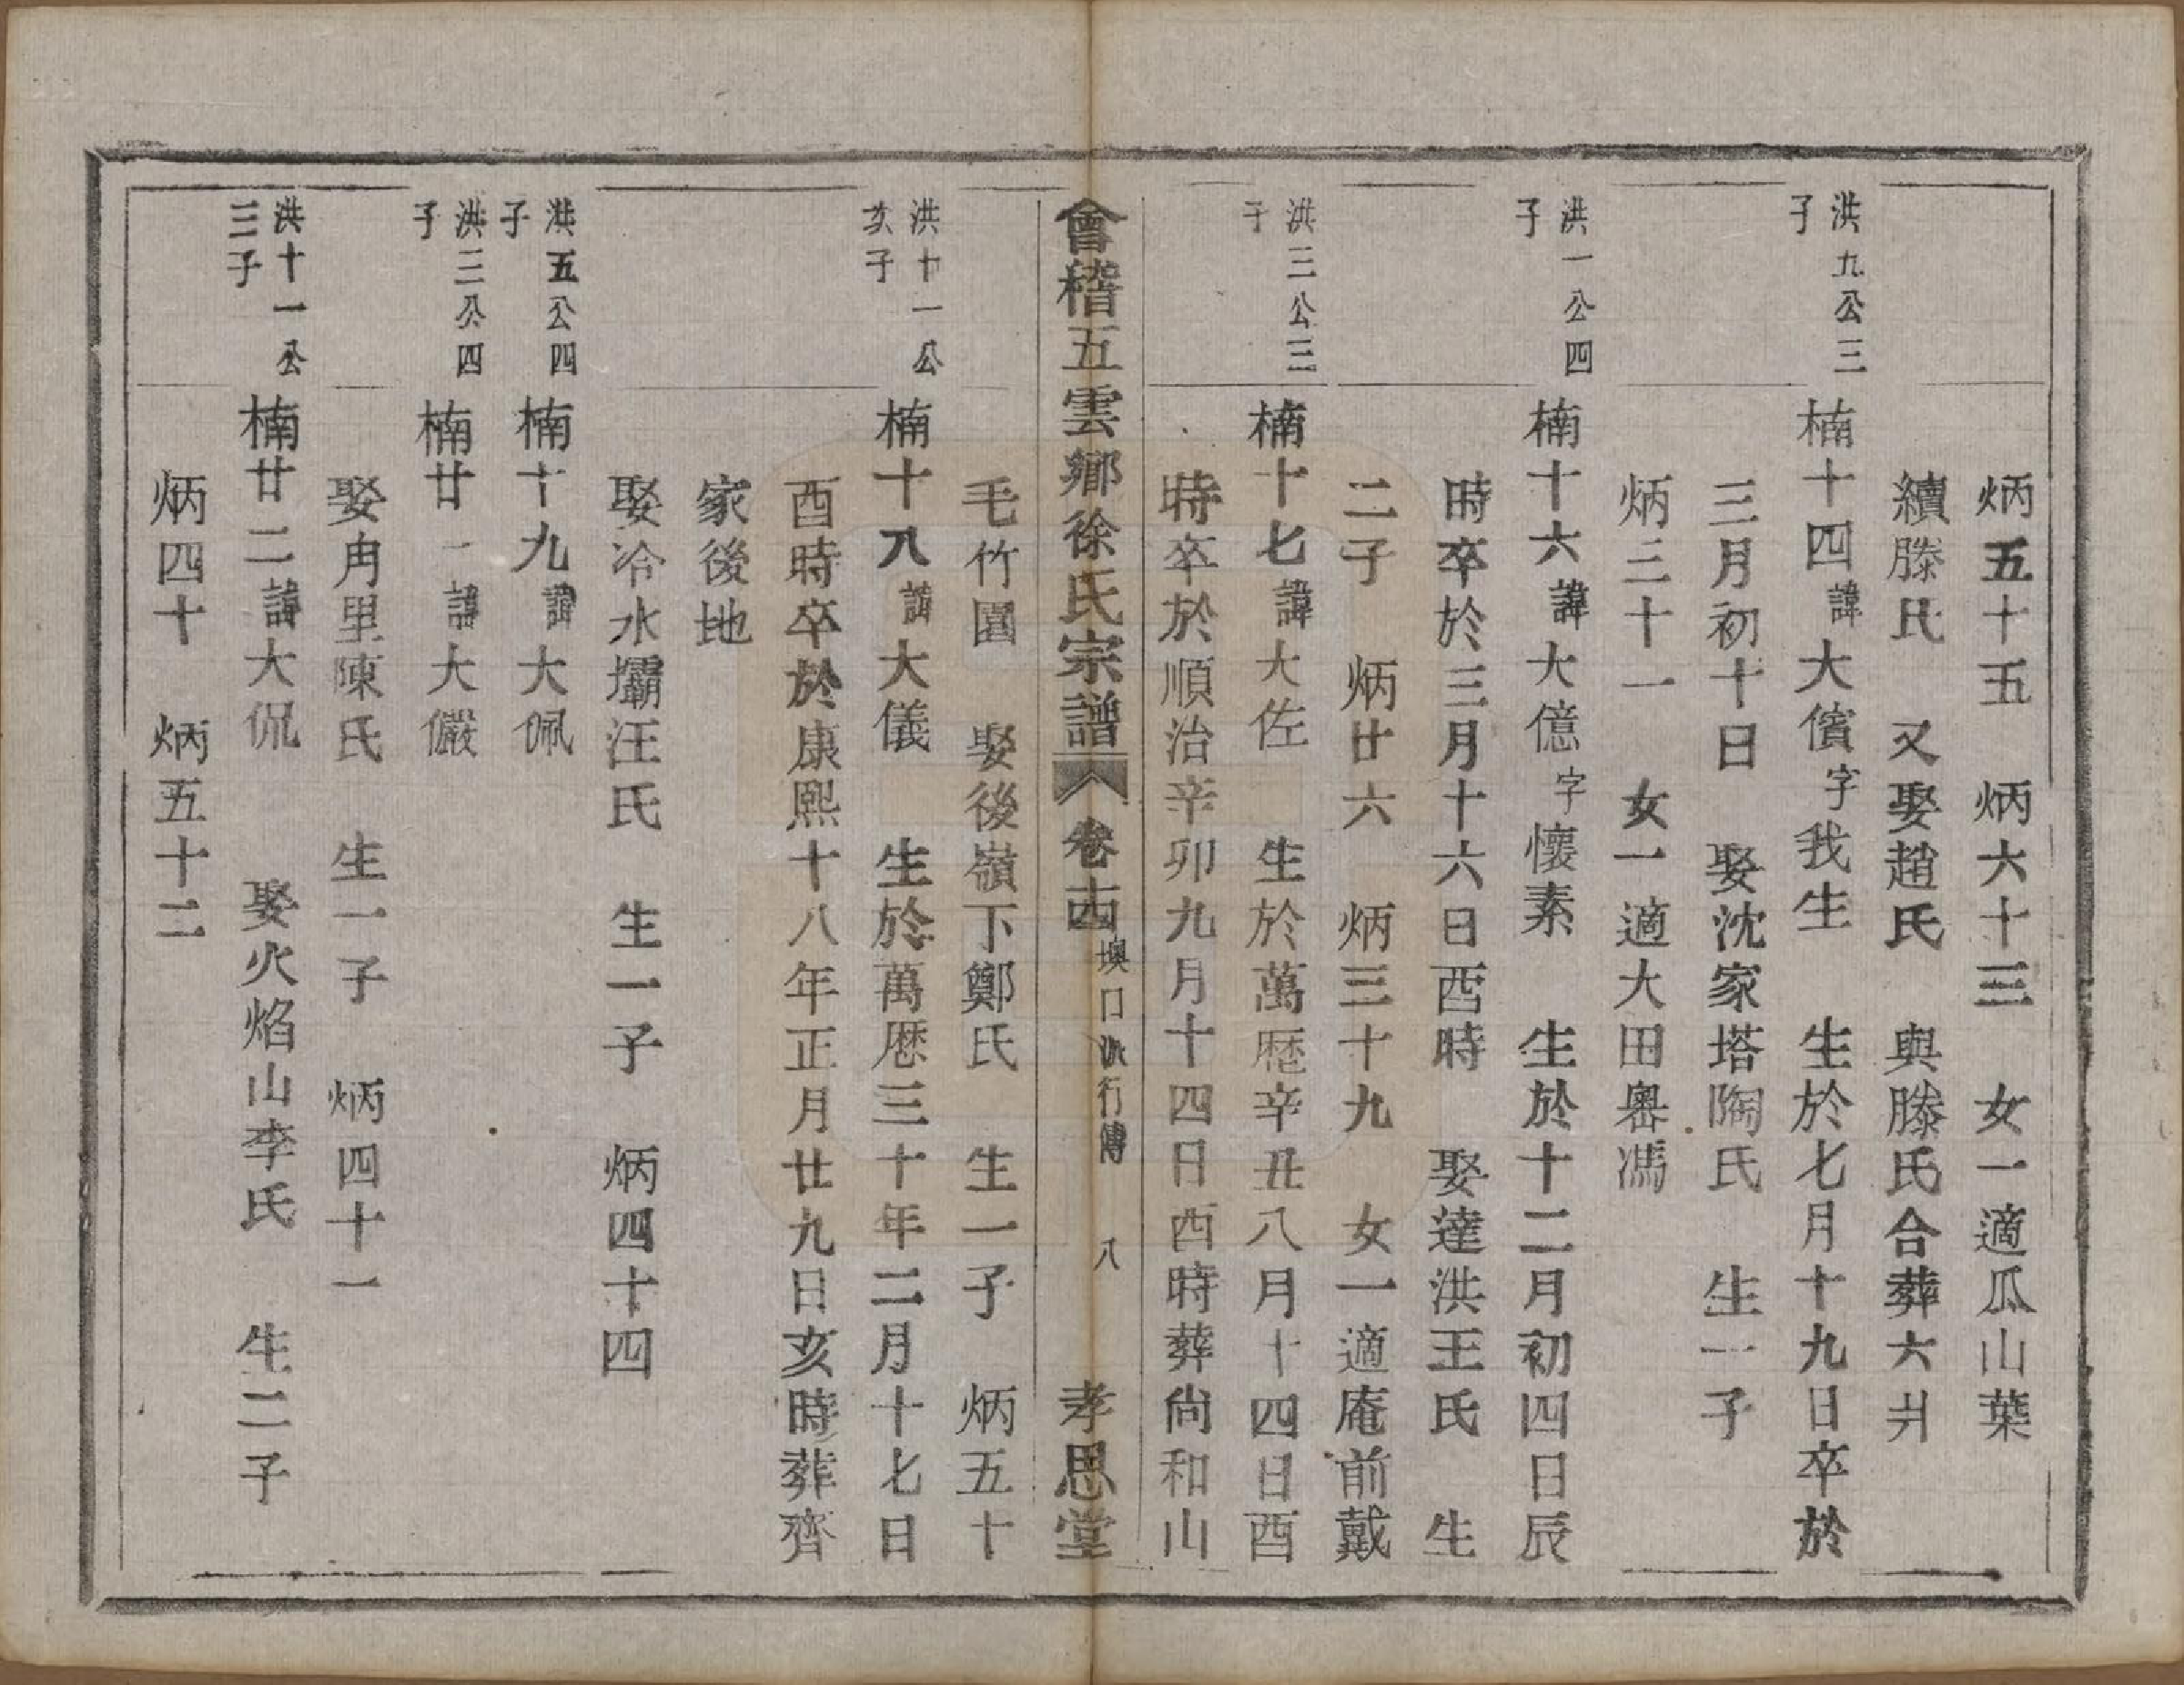 炳五十五　炳六十三　女一適瓜山葉
續滕氏　又娶趙氏　與滕氏合葬六丼
洪九公三子
楠十四諱大儐字我生　生於七月十九日卒於
三月初十日　娶沈家塔陶氏　生一子
炳三十一　女一適大田嶴馮
洪一公四子
楠十六諱大億字懷素　生於十二月初四日辰
時卒於三月十六日酉時　娶達洪王氏　生
二子　炳廿六　炳三十九　女一適庵前戴
洪三公三子
楠十七諱大佐　生於萬歷辛丑八月十四日酉
時卒於順治辛卯九月十四日酉時葬尙和山
會稽五雲鄉徐氏宗譜　卷十四　墺口派行傳　八　孝思堂
毛竹園　娶後嶺下鄭氏　生一子　炳五十
洪十一公次子
楠十八諱大儀　生於萬歷三十年二月十七日
酉時卒於康熙十八年正月廿九日亥時葬齊
家後地
娶冷水壩汪氏　生一子　炳四十四
洪五公四子
楠十九諱大佩
洪三公四子
楠廿一諱大儼
娶冉里陳氏　生一子　炳四十一
洪十一公三子
楠廿二諱大侃　娶火焰山李氏　生二子
炳四十　炳五十二